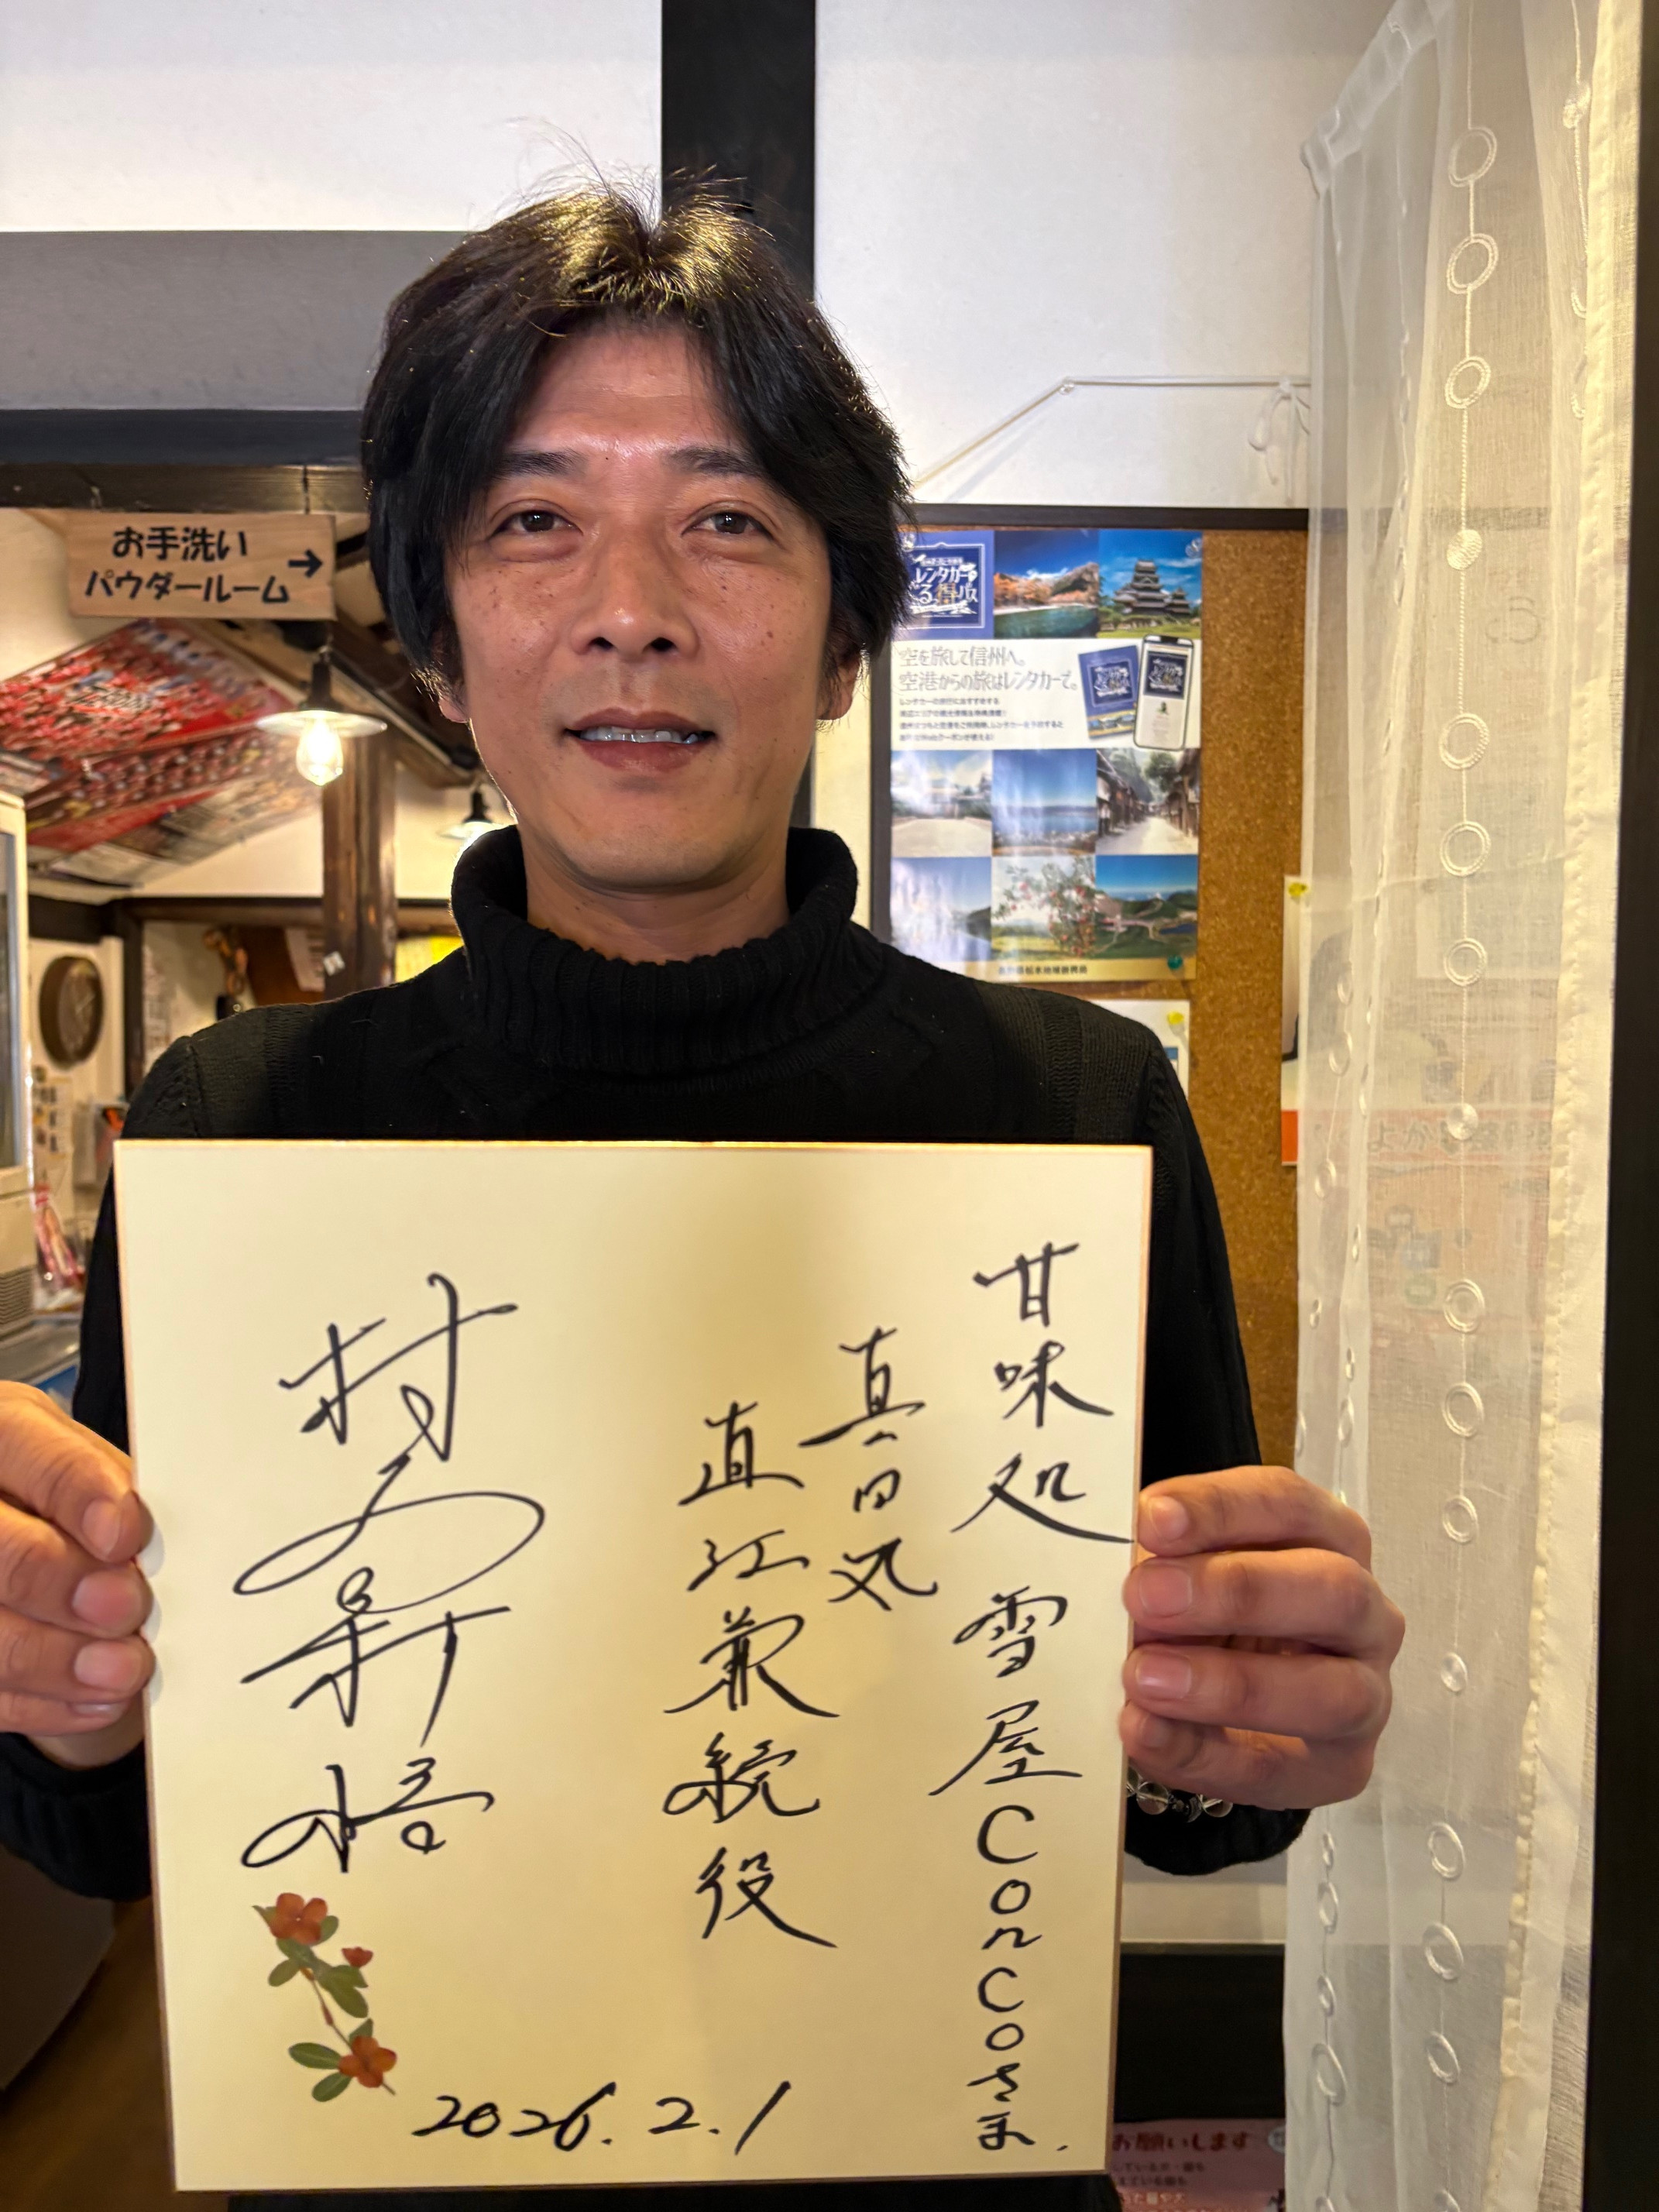 お手洗い
パウダールーム→
レンタカー
空を旅して信州へ。
空港からの旅はレンタカーで。
甘味処 雪屋ConCoさま
真田丸
直江兼続役
村上新悟
2026.2.1
お願いします